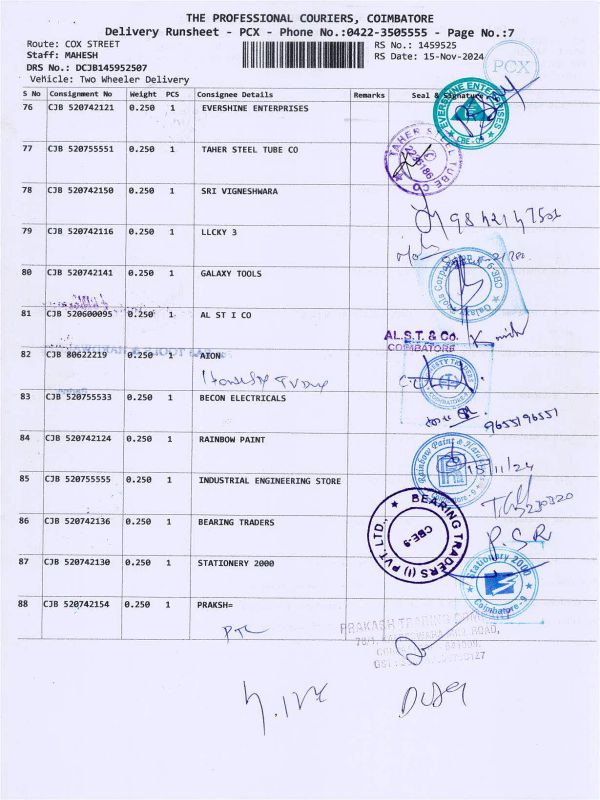 THE PROFESSIONAL COURIERS, COIMBATORE
Delivery Runsheet - PCX - Phone No.:0422-3505555 - Page No.:7
Route: COX STREET RS No.: 1459525
Staff: MAHESH RS Date: 15-Nov-2024
DRS No.: DCJB145952507 PCX
Vehicle: Two Wheeler Delivery
S No Consignment No Weight PCS Consignee Details Remarks Seal & Signature
76 CJB 520742121 0.250 1 EVERSHINE ENTERPRISES
EVERSHINE ENTERPRISES CBE-09
77 CJB 520755551 0.250 1 TAHER STEEL TUBE CO
TAHER STEEL TUBE CO
78 CJB 520742150 0.250 1 SRI VIGNESHWARA
79 CJB 520742116 0.250 1 LLCKY 3
80 CJB 520742141 0.250 1 GALAXY TOOLS
81 CJB 520600095 0.250 1 AL ST I CO
AL.S.T. & Co.
COIMBATORE
82 CJB 80622219 0.250 1 AION
83 CJB 520755533 0.250 1 BECON ELECTRICALS
9655196551
84 CJB 520742124 0.250 1 RAINBOW PAINT
Rainbow Paint &
15/11/24
85 CJB 520755555 0.250 1 INDUSTRIAL ENGINEERING STORE
86 CJB 520742136 0.250 1 BEARING TRADERS
BEARING TRADERS (I) PVT. LTD., CBE-9
P.S.R
87 CJB 520742130 0.250 1 STATIONERY 2000
Stationary 2000 Coimbatore-9
88 CJB 520742154 0.250 1 PRAKSH=
PRAKASH TRADING